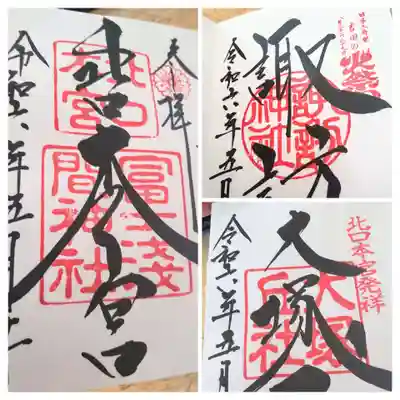 奉拝
北口本宮
冨士浅
間神社
令和六年五月
日本三奇祭
吉田の
火祭
諏訪
諏訪
神社
令和六年五月
北口本宮発祥
大塚
大塚
丘社
令和六年五月